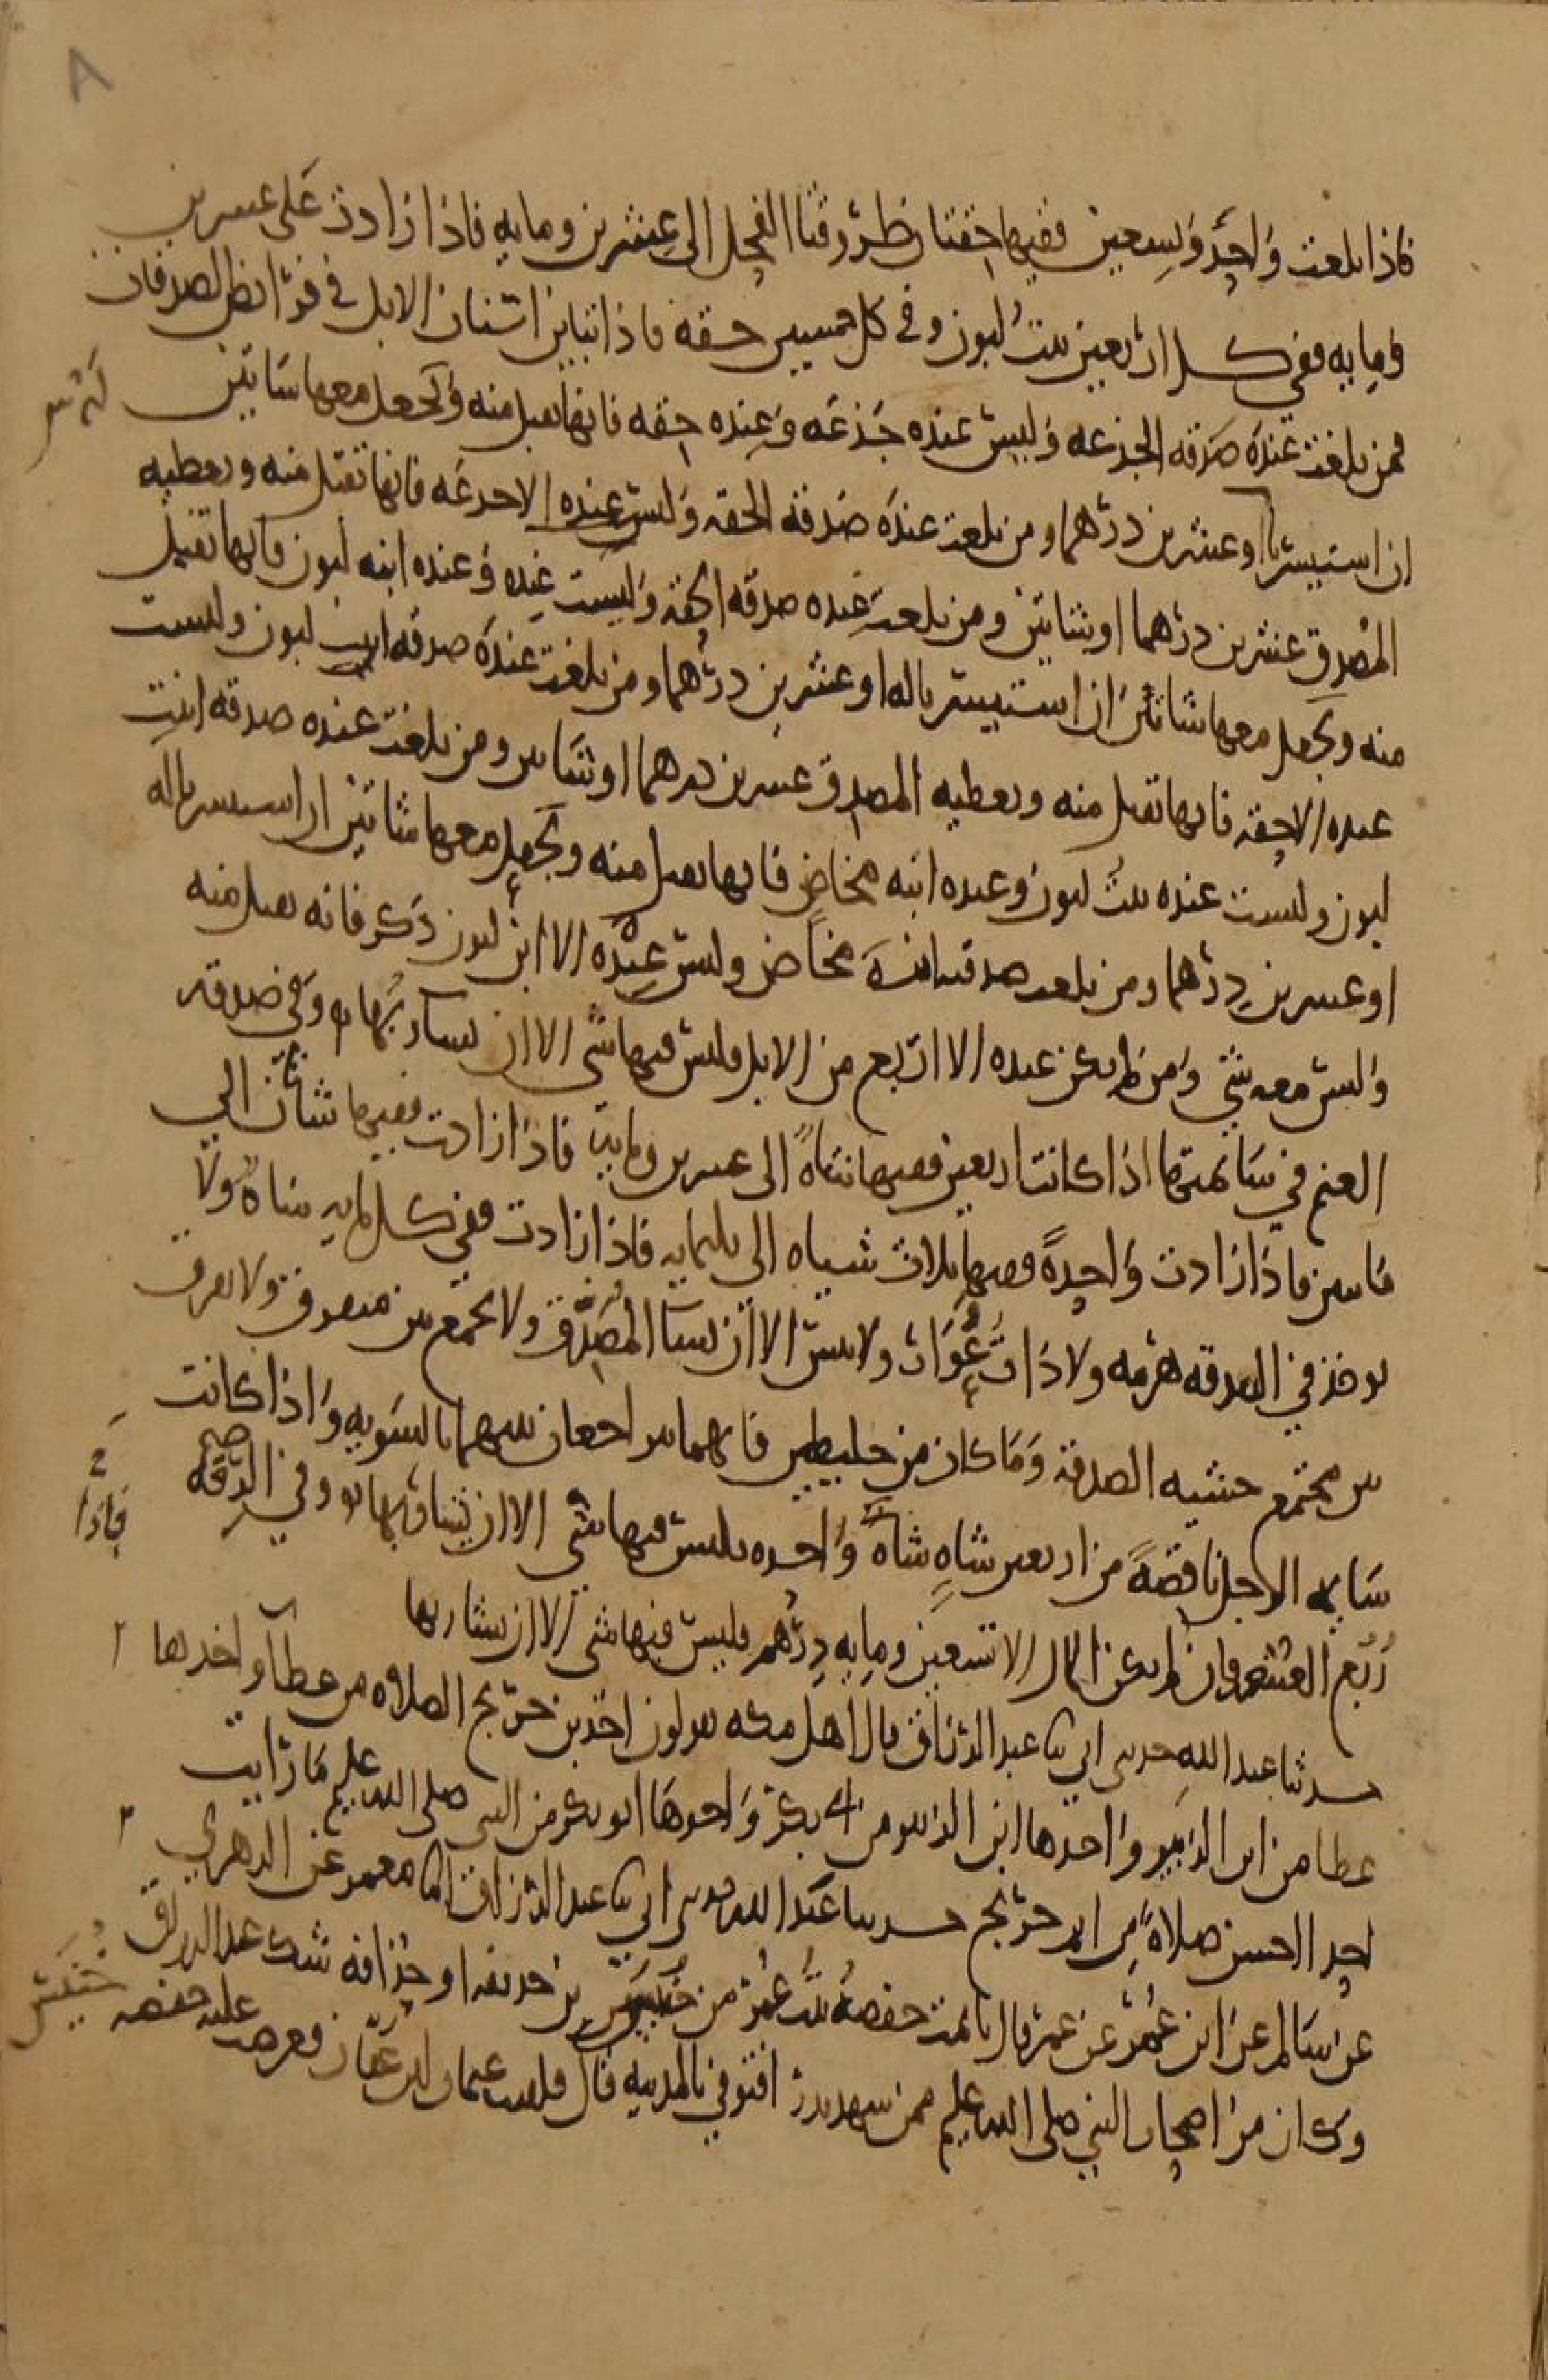 فاذا بلغت واحد وتسعين ففيها حقتان طروقتا الفحل الى عشرين ومايه فاذا زادت على عشرين
ومايه ففي كل اربعين بنت لبون وفي كل خمسين حقه فاذا تباين اسنان الابل في فرائض الصدقات
فمن بلغت عنده صدقه الجذعه وليس عنده جذعه وعنده حقه فانها تقبل منه ويجعل معها شاتين
ان استيسرتا او عشرين درهما ومن بلغت عنده صدقه الحقه وليس عنده الا جدعه فانها تقبل منه ويعطيه
المصدق عشرين درهما او شاتين ومن بلغت عنده صدقه الحقه وليست عنده وعنده ابنه لبون فانها تقبل
منه ويجعل معها شاتين ان استيسرتا له او عشرين درهما ومن بلغت عنده صدقه ابنت لبون وليست
عنده الا حقه فانها تقبل منه ويعطيه المصدق عشرين درهما او شاتين ومن بلغت عنده صدقه ابنت
لبون وليست عنده بنت لبون وعنده ابنه مخاض فانها تقبل منه ويجعل معها شاتين ان استيسرتا له
او عشرين درهما ومن بلغت صدقته ابنة مخاض وليس عنده الا ابن لبون ذكر فانه يقبل منه
وليس معه شي ومن لم يكن عنده الا اربع من الابل فليس فيها شي الا ان يشا ربها وفي صدقه
الغنم في سائمتها اذا كانت اربعين ففيها شاة الى عشرين ومايه فاذا زادت ففيها شاتان الى
مايتين فاذا زادت واحدة ففيها ثلاث شياه الى ثلثمايه فاذا زادت ففي كل مايه شاة ولا
يوخذ في الصدقه هرمه ولا ذات عوار ولا تيس الا ان يشا المصدق ولا يجمع بين متفرق ولا يفرق
بين مجتمع خشيه الصدقه وما كان من خليطين فانهما يتراجعان بينهما بالسويه واذا كانت
سايمه الرجل ناقصة من اربعين شاه شاة واحده فليس فيها شي الا ان يشا ربها وفي الرقه
صح
فاذا
ربع العشر فان لم يكن المال الا تسعين ومايه درهم فليس فيها شي الا ان يشا ربها
حدثنا عبد الله حدثني ابي ثنا عبد الرزاق قال اهل مكه يقولون اخذ ابن جريج الصلاه من عطا واخذها
عطا من ابن الزبير واخذها ابن الزبير من ابي بكر واخذها ابو بكر من النبي صلى الله عليه ما رايت
احد احسن صلاة من ابن جريج حدثنا عبد الله حدثني ابي ثنا عبد الرزاق انا معمر عن الزهري
عن سالم عن ابن عمر عن عمر قال تايمت حفصة بنت عمر من خنيس بن حذيفه او حذافه شك عبد الرزاق
خنيس
وكان من اصحاب النبي صلى الله عليه ممن شهد بدرا فتوفي بالمدينه قال فلقيت عثمان ابن عفان فعرضت عليه حفصه